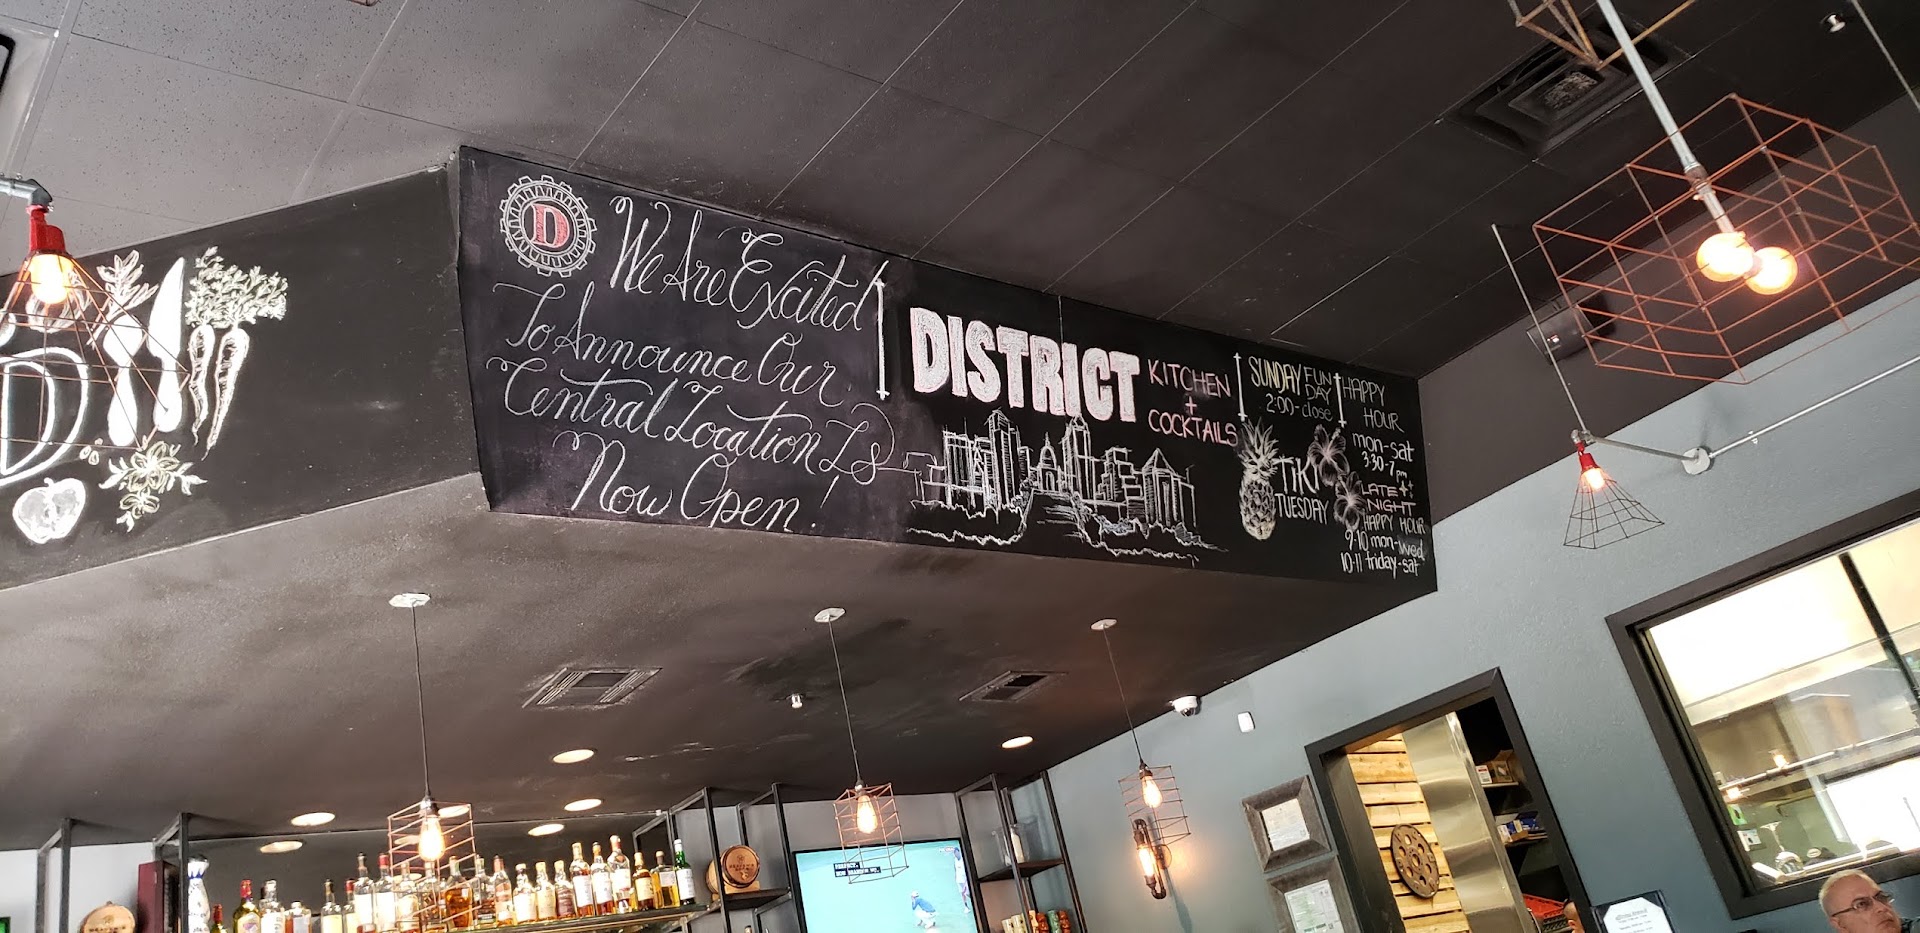 D
D
We Are Excited
To Announce Our
Central Location Is
Now Open!
DISTRICT
KITCHEN
+
COCKTAILS
SUNDAY FUN
DAY
2:00-close
TIKI
TUESDAY
HAPPY
HOUR
mon-sat
3:30-7pm
LATE
NIGHT
HAPPY HOUR
9-10 mon-wed
10-11 friday-sat